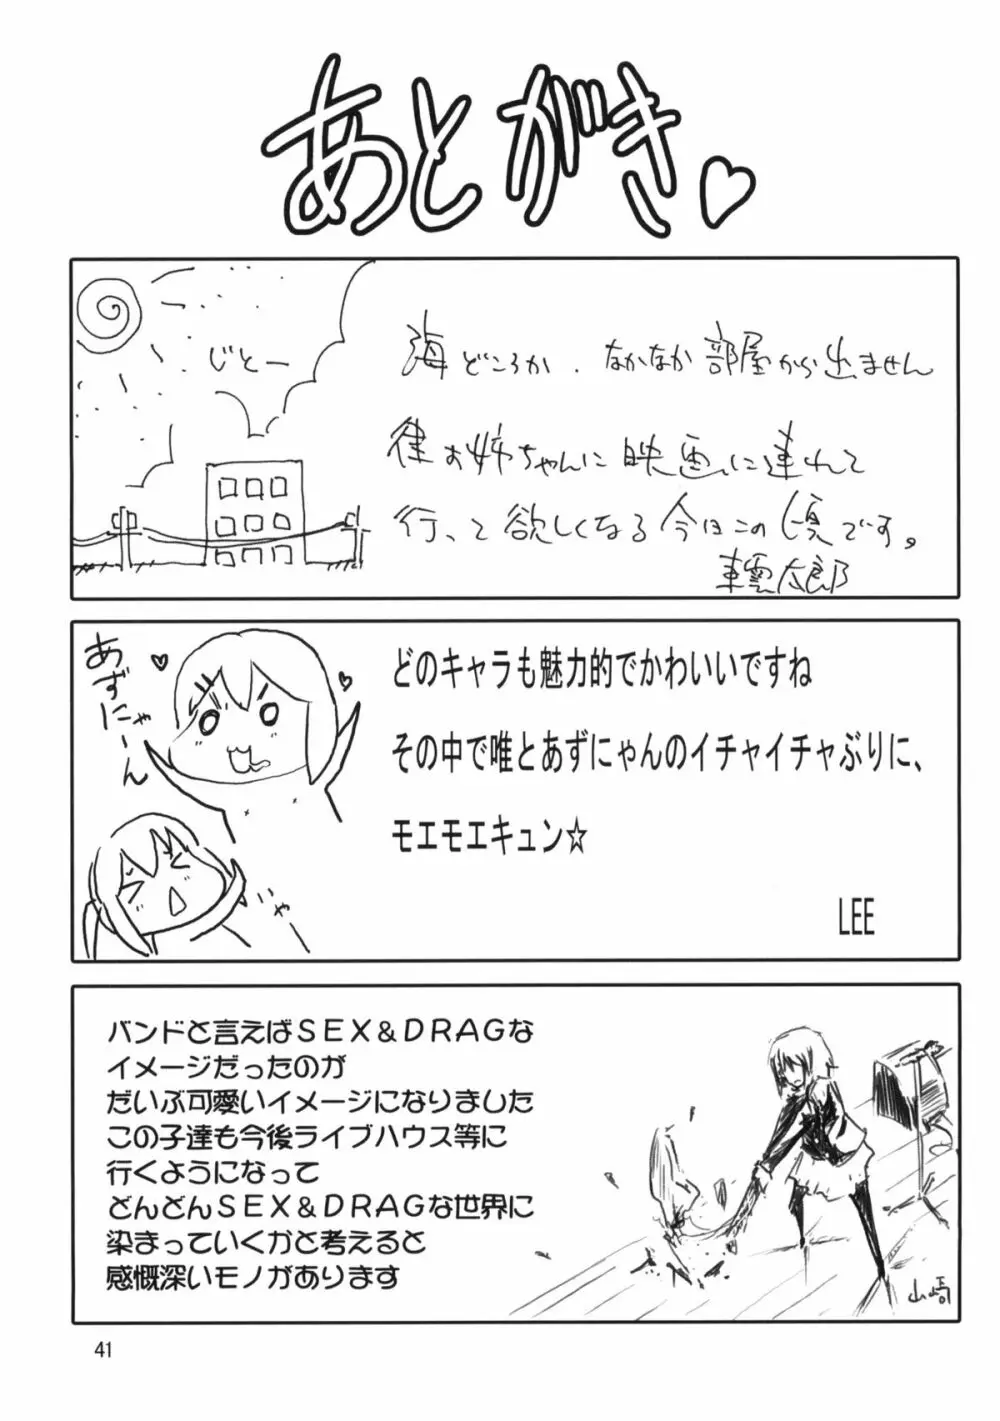 あとがき♡
じとー
海どころか、なかなか部屋から出ません
律お姉ちゃんに映画に連れて
行って欲しくなる今日この頃です。
東雲太郎
あずにゃーん
どのキャラも魅力的でかわいいですね
その中で唯とあずにゃんのイチャイチャぶりに、
モエモエキュン☆
LEE
にゃー
バンドと言えばＳＥＸ＆ＤＲＡＧな
イメージだったのが
だいぶ可愛いイメージになりました
この子達も今後ライブハウス等に
行くようになって
どんどんＳＥＸ＆ＤＲＡＧな世界に
染まっていくかと考えると
感慨深いモノがあります
山崎
41